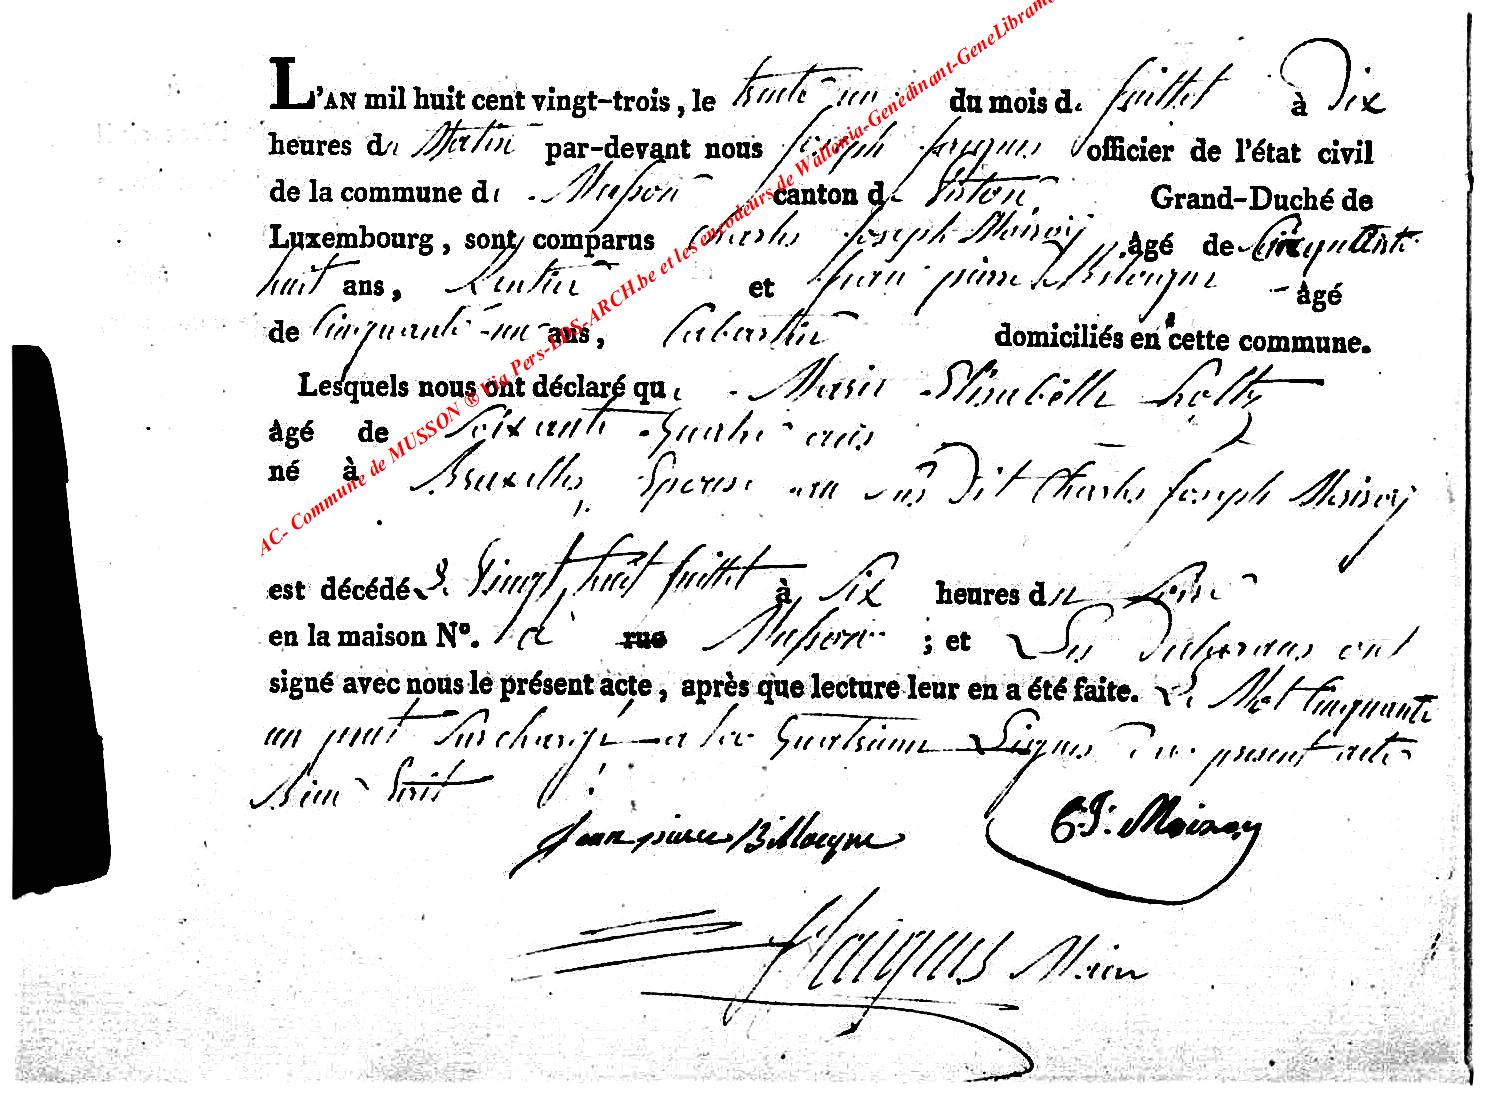 L'AN mil huit cent vingt-trois, le trente un du mois de juillet à Dix
heures du Matin par-devant nous Joseph Jacques officier de l'état civil
de la commune de Musson canton de Virton Grand-Duché de
Luxembourg, sont comparus Charles Joseph Moisoy âgé de Cinquante
huit ans, Rentier et Jean pierre Billocque âgé
de Cinquante-un ans, Cabartier domiciliés en cette commune.
Lesquels nous ont déclaré que Marie Elisabethe
âgé de Soixante quatre ans
né à Bruxelles Epouse au sus Dit Charles Joseph Moisoy
est décédé le Vingt huit juillet à Six heures du Soir
en la maison N°. a rue Musson ; et Les Declarans ont
signé avec nous le présent acte, après que lecture leur en a été faite. Le Mot Cinquante
un peut Surchargé a la Quatrieme Lignes du present acte
Bien Ecrit
Jean pierre Billocque C. J. Moisoy
Jacques Maire
AC- Commune de MUSSON ® Via Pers-BDS-ARCH.be et les encodeurs de Wallonia-Genedinant-GeneLibrame